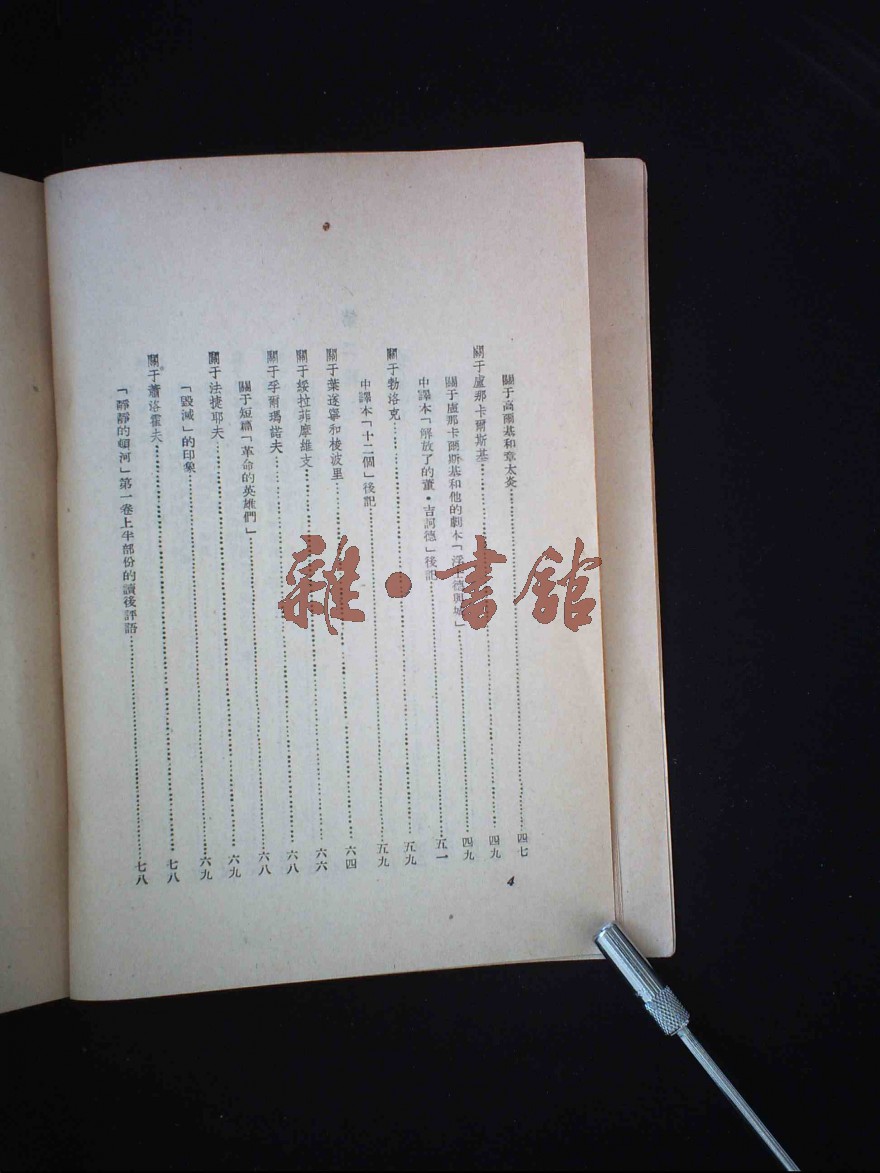 關于高爾基和章太炎……四七
關于盧那卡爾斯基……四九
關于盧那卡爾斯基和他的劇本「浮士德與城」……四九
中譯本「解放了的董·吉訶德」後記……五一
關于勃洛克……五九
中譯本「十二個」後記……五九
關于葉遂寧和梭波里……六四
關于綏拉菲摩維支……六六
關于孚爾瑪諾夫……六八
關于短篇「革命的英雄們」……六八
關于法捷耶夫……六九
「毀滅」的印象……六九
關于蕭洛霍夫……七八
「靜靜的頓河」第一卷上半部份的讀後評語……七八
4
雜·書館